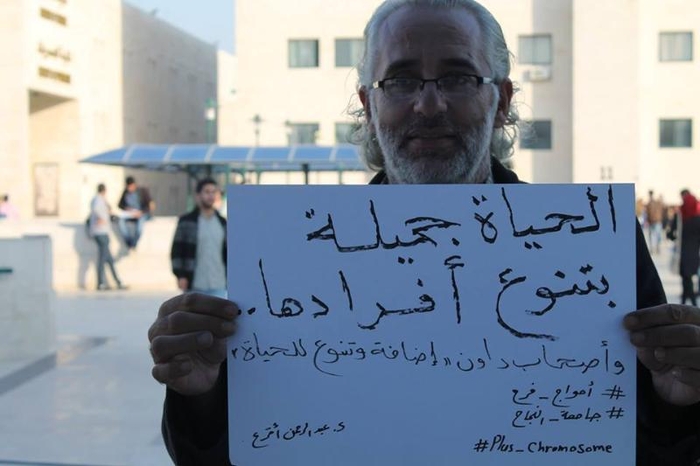 الحياة جميلة
بتنوع أفرادها.
وأصحاب داون "إضافة وتنوع للحياة"
# أمواج_فرح
# جامعة_النجاح
د. عبدالرحمن أقرع
#Plus_Chromosome